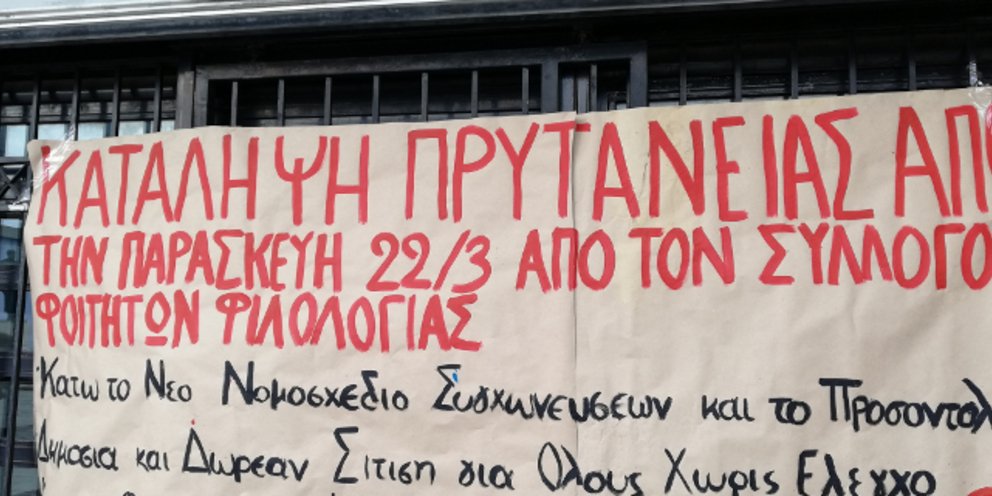 ΚΑΤΑΛΗΨΗ ΠΡΥΤΑΝΕΙΑΣ ΑΠΟ
ΤΗΝ ΠΑΡΑΣΚΕΥΗ 22/3 ΑΠΟ ΤΟΝ ΣΥΛΛΟΓΟ
ΦΟΙΤΗΤΩΝ ΦΙΛΟΛΟΓΙΑΣ
Κατω το Νεο Νομοσχεδιο Συγχωνευσεων και το Προσοντολ
Δημοσια και Δωρεαν Σιτιση για Ολους Χωρις Ελεγχο